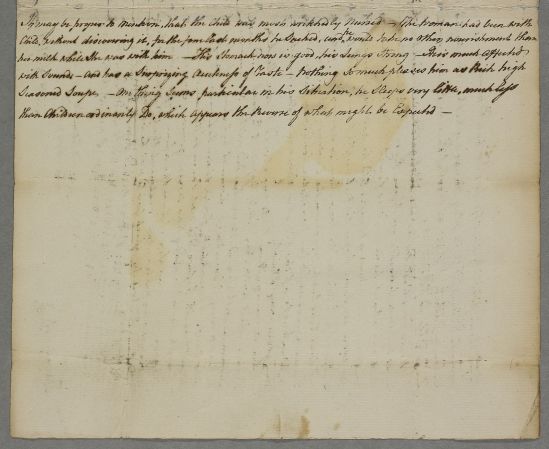 It may be proper to mention, that the Child was much wretched by Nurses – One Woman had been with
Child, without discovering it, for the four last months he Sucked, and wou'd take no other nourishment than
her milk while She was with him – His Stomach now is good, his Lungs Strong – He is much affected
with Sounds – and has a Surprizing Quickness of Taste – Nothing So much pleases him as Rich high
Seasoned Soups. – One thing Seems particular in his Situation, he Sleeps very little, much less
than Children ordinarily Do, which appears the Reverse of what might be Expected –